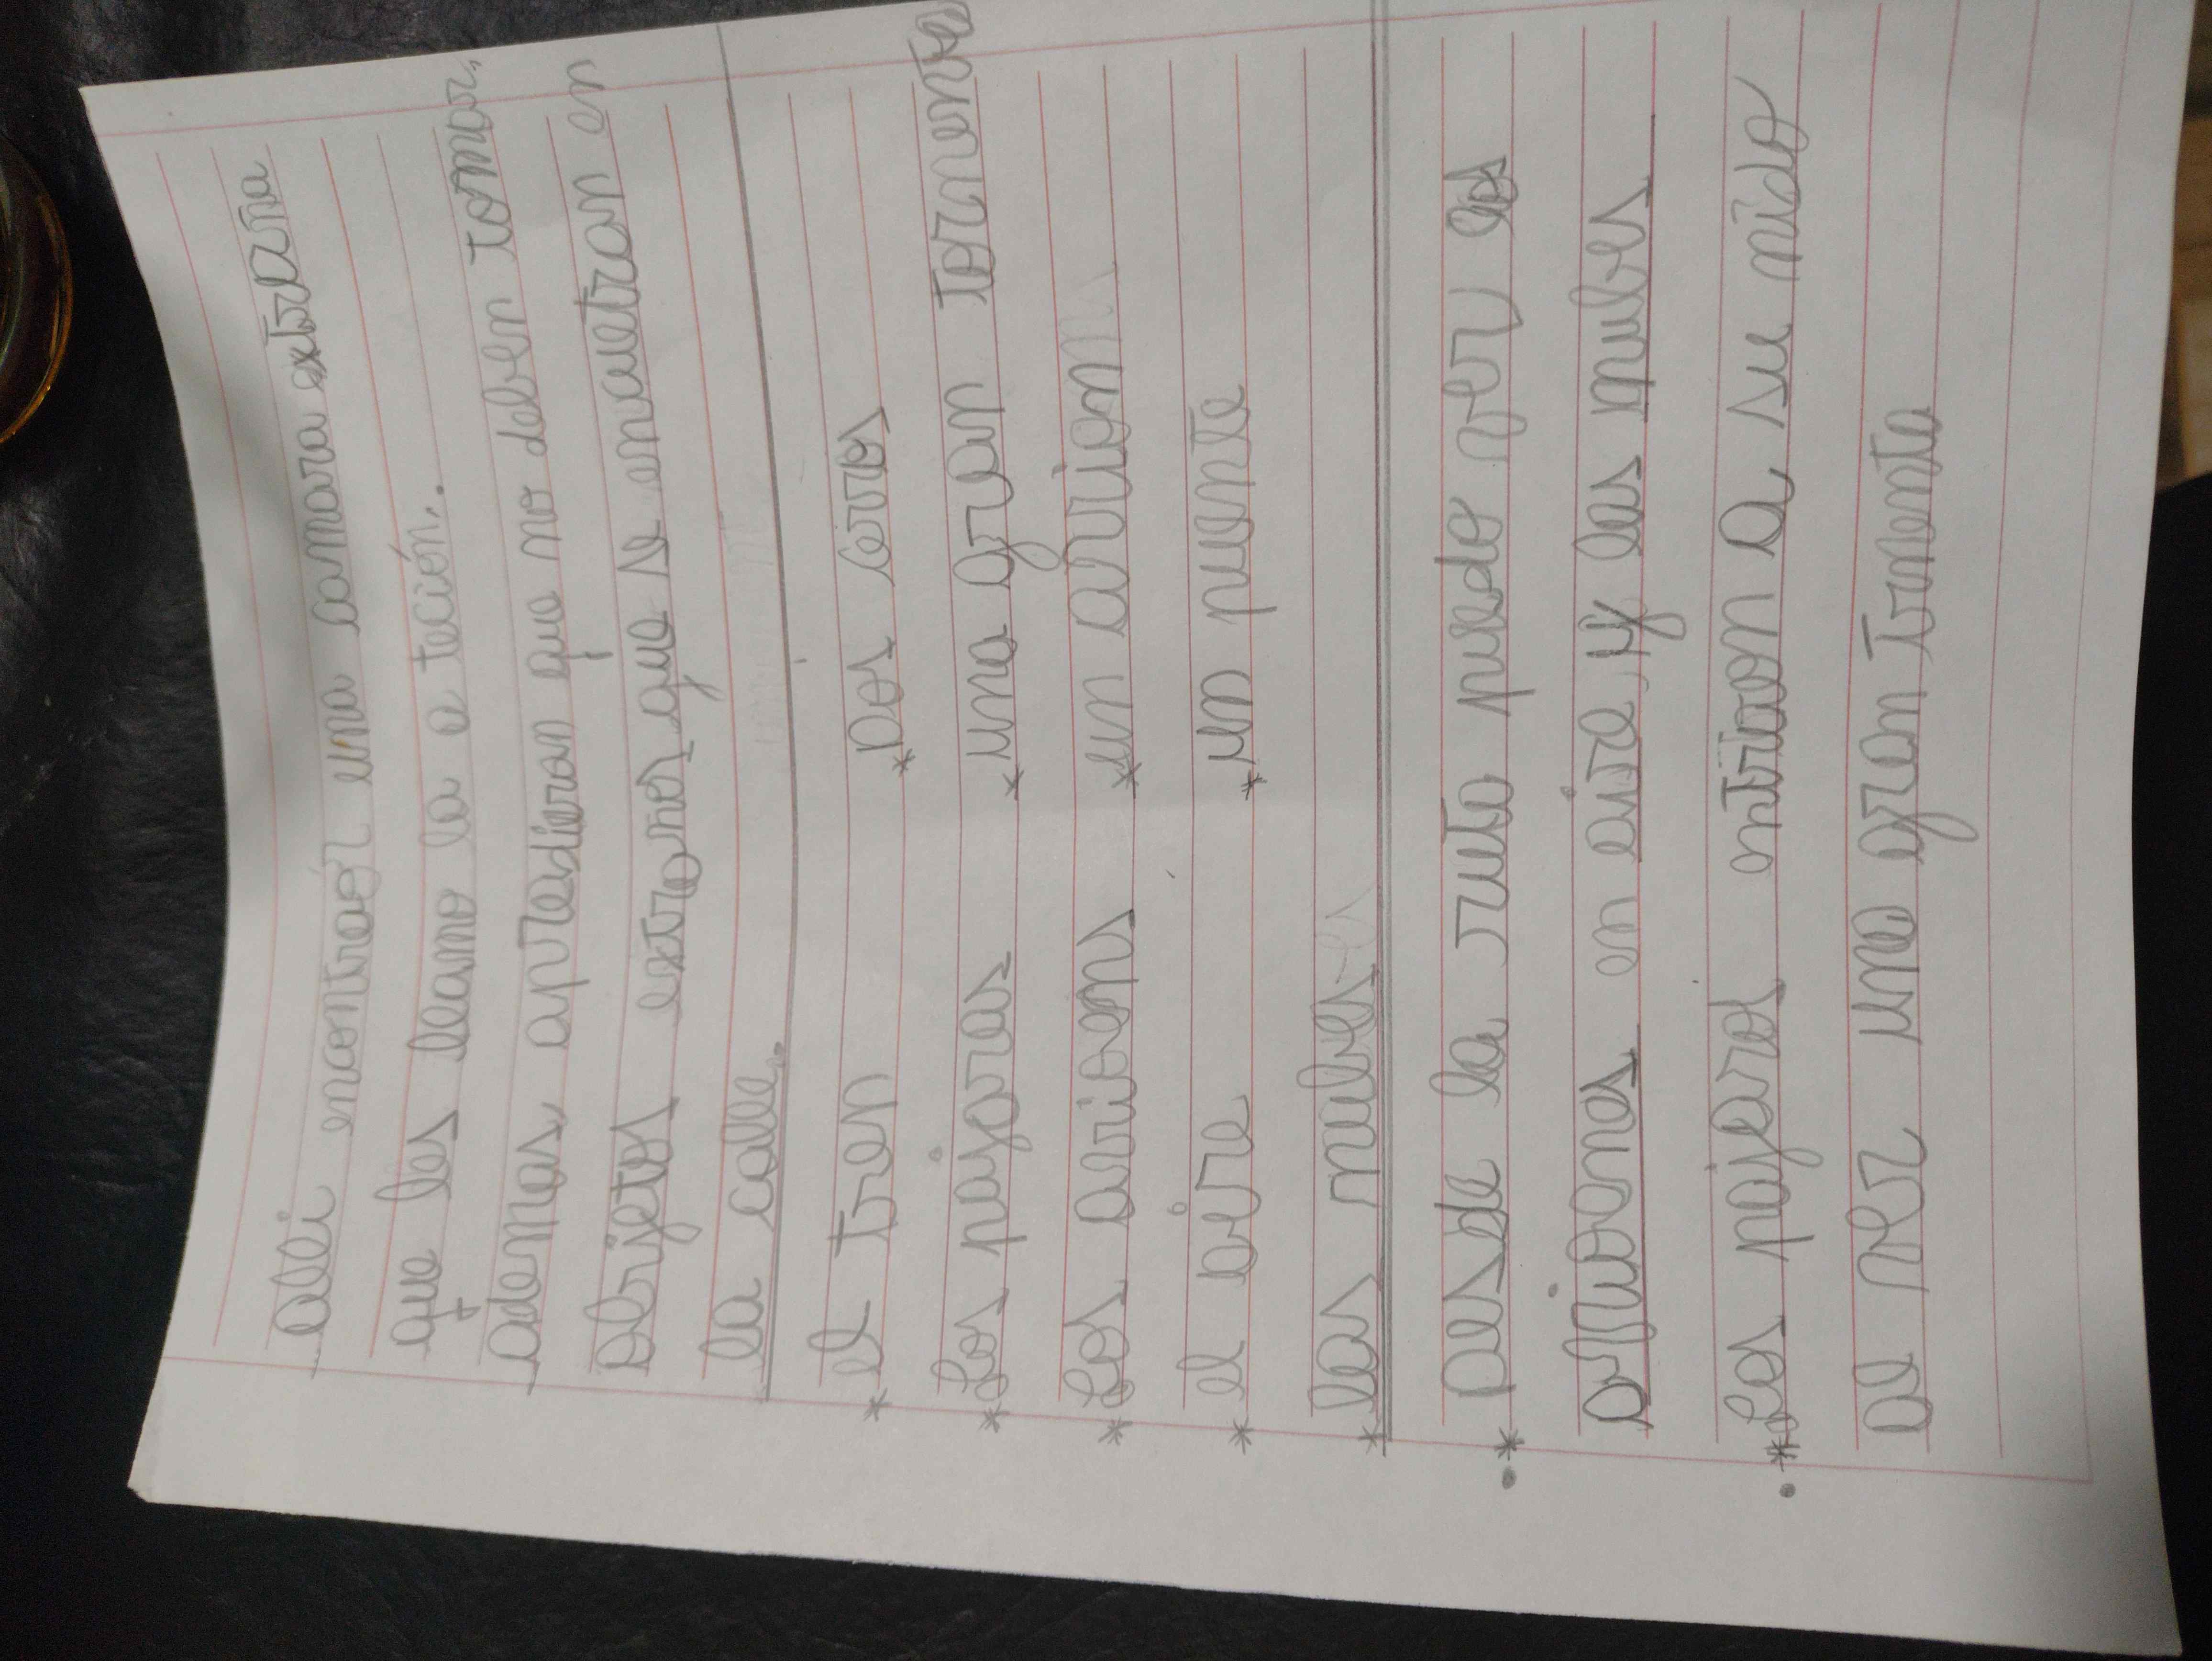 alli encontraor una camara extraña
que les leamo la a teción.
ademas, apresdieron que no deben tomar,
objetos extraños que se encuetran en
la calle.
* el tren * Dos cerros
* Los pajaros * una gran tormenta
* Los avioens * un avion
* el aire * un puente
* las nubes
• * Desde la ruta puedo ver los
aviones en aire y las nubes
• * Los pajaros entraon a su nido
al ver una gran tromenta